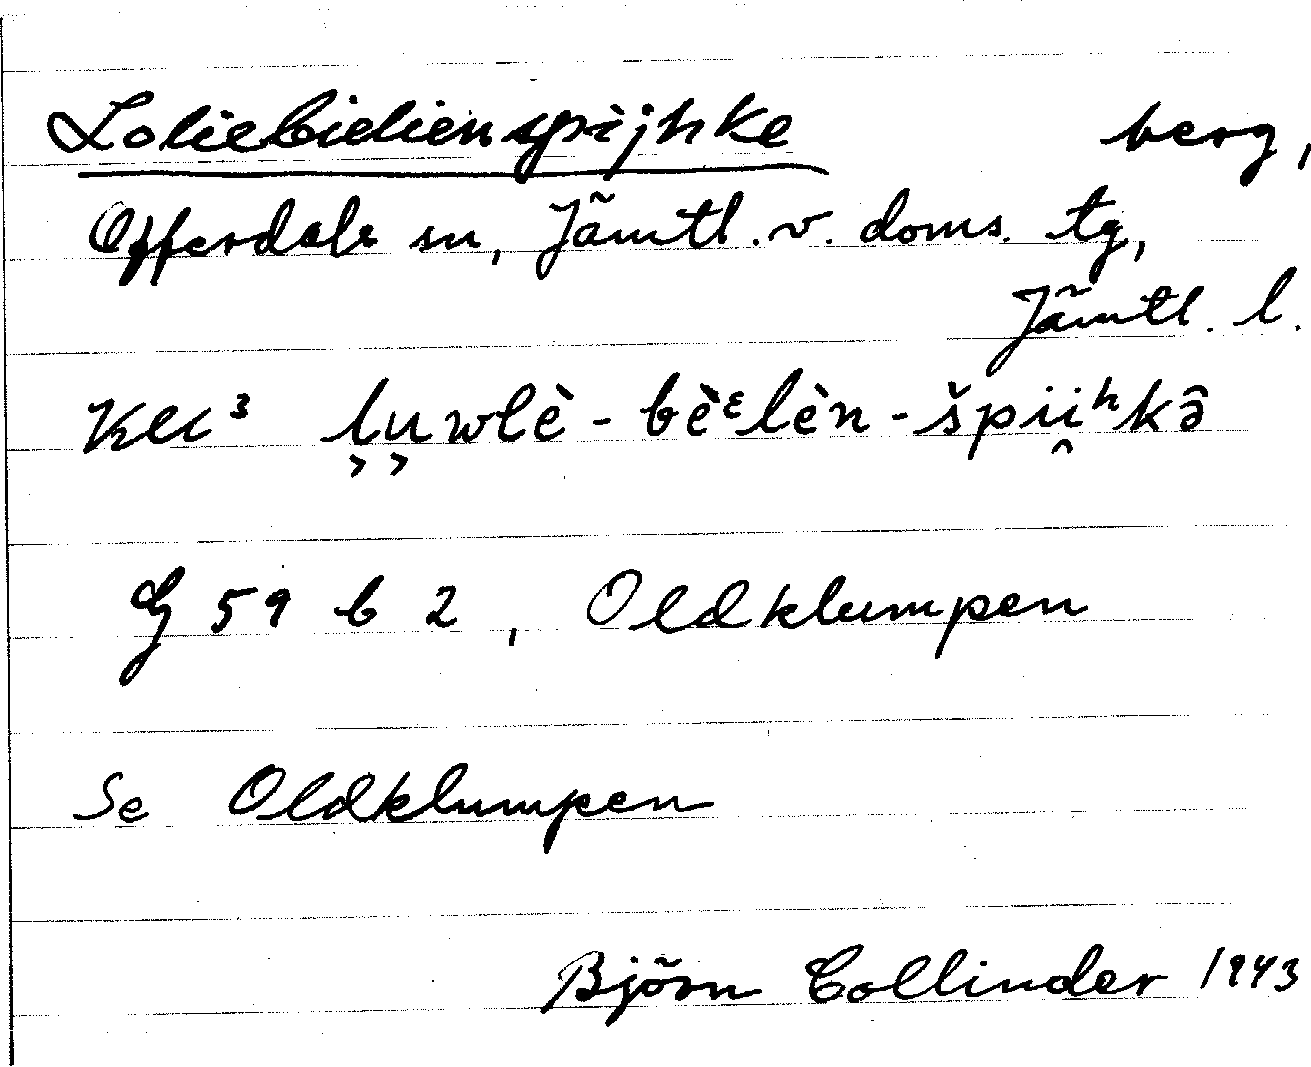 Loliebielienspijhke berg,
Offerdals sn, Jämtl. v. doms. tg,
Jämtl. l.
Kll³ l̬u̬wlè - bèᵋlèn - špii̭ʰkə̂
G 59 b 2, Oldklumpen
Se Oldklumpen
Björn Collinder 1943